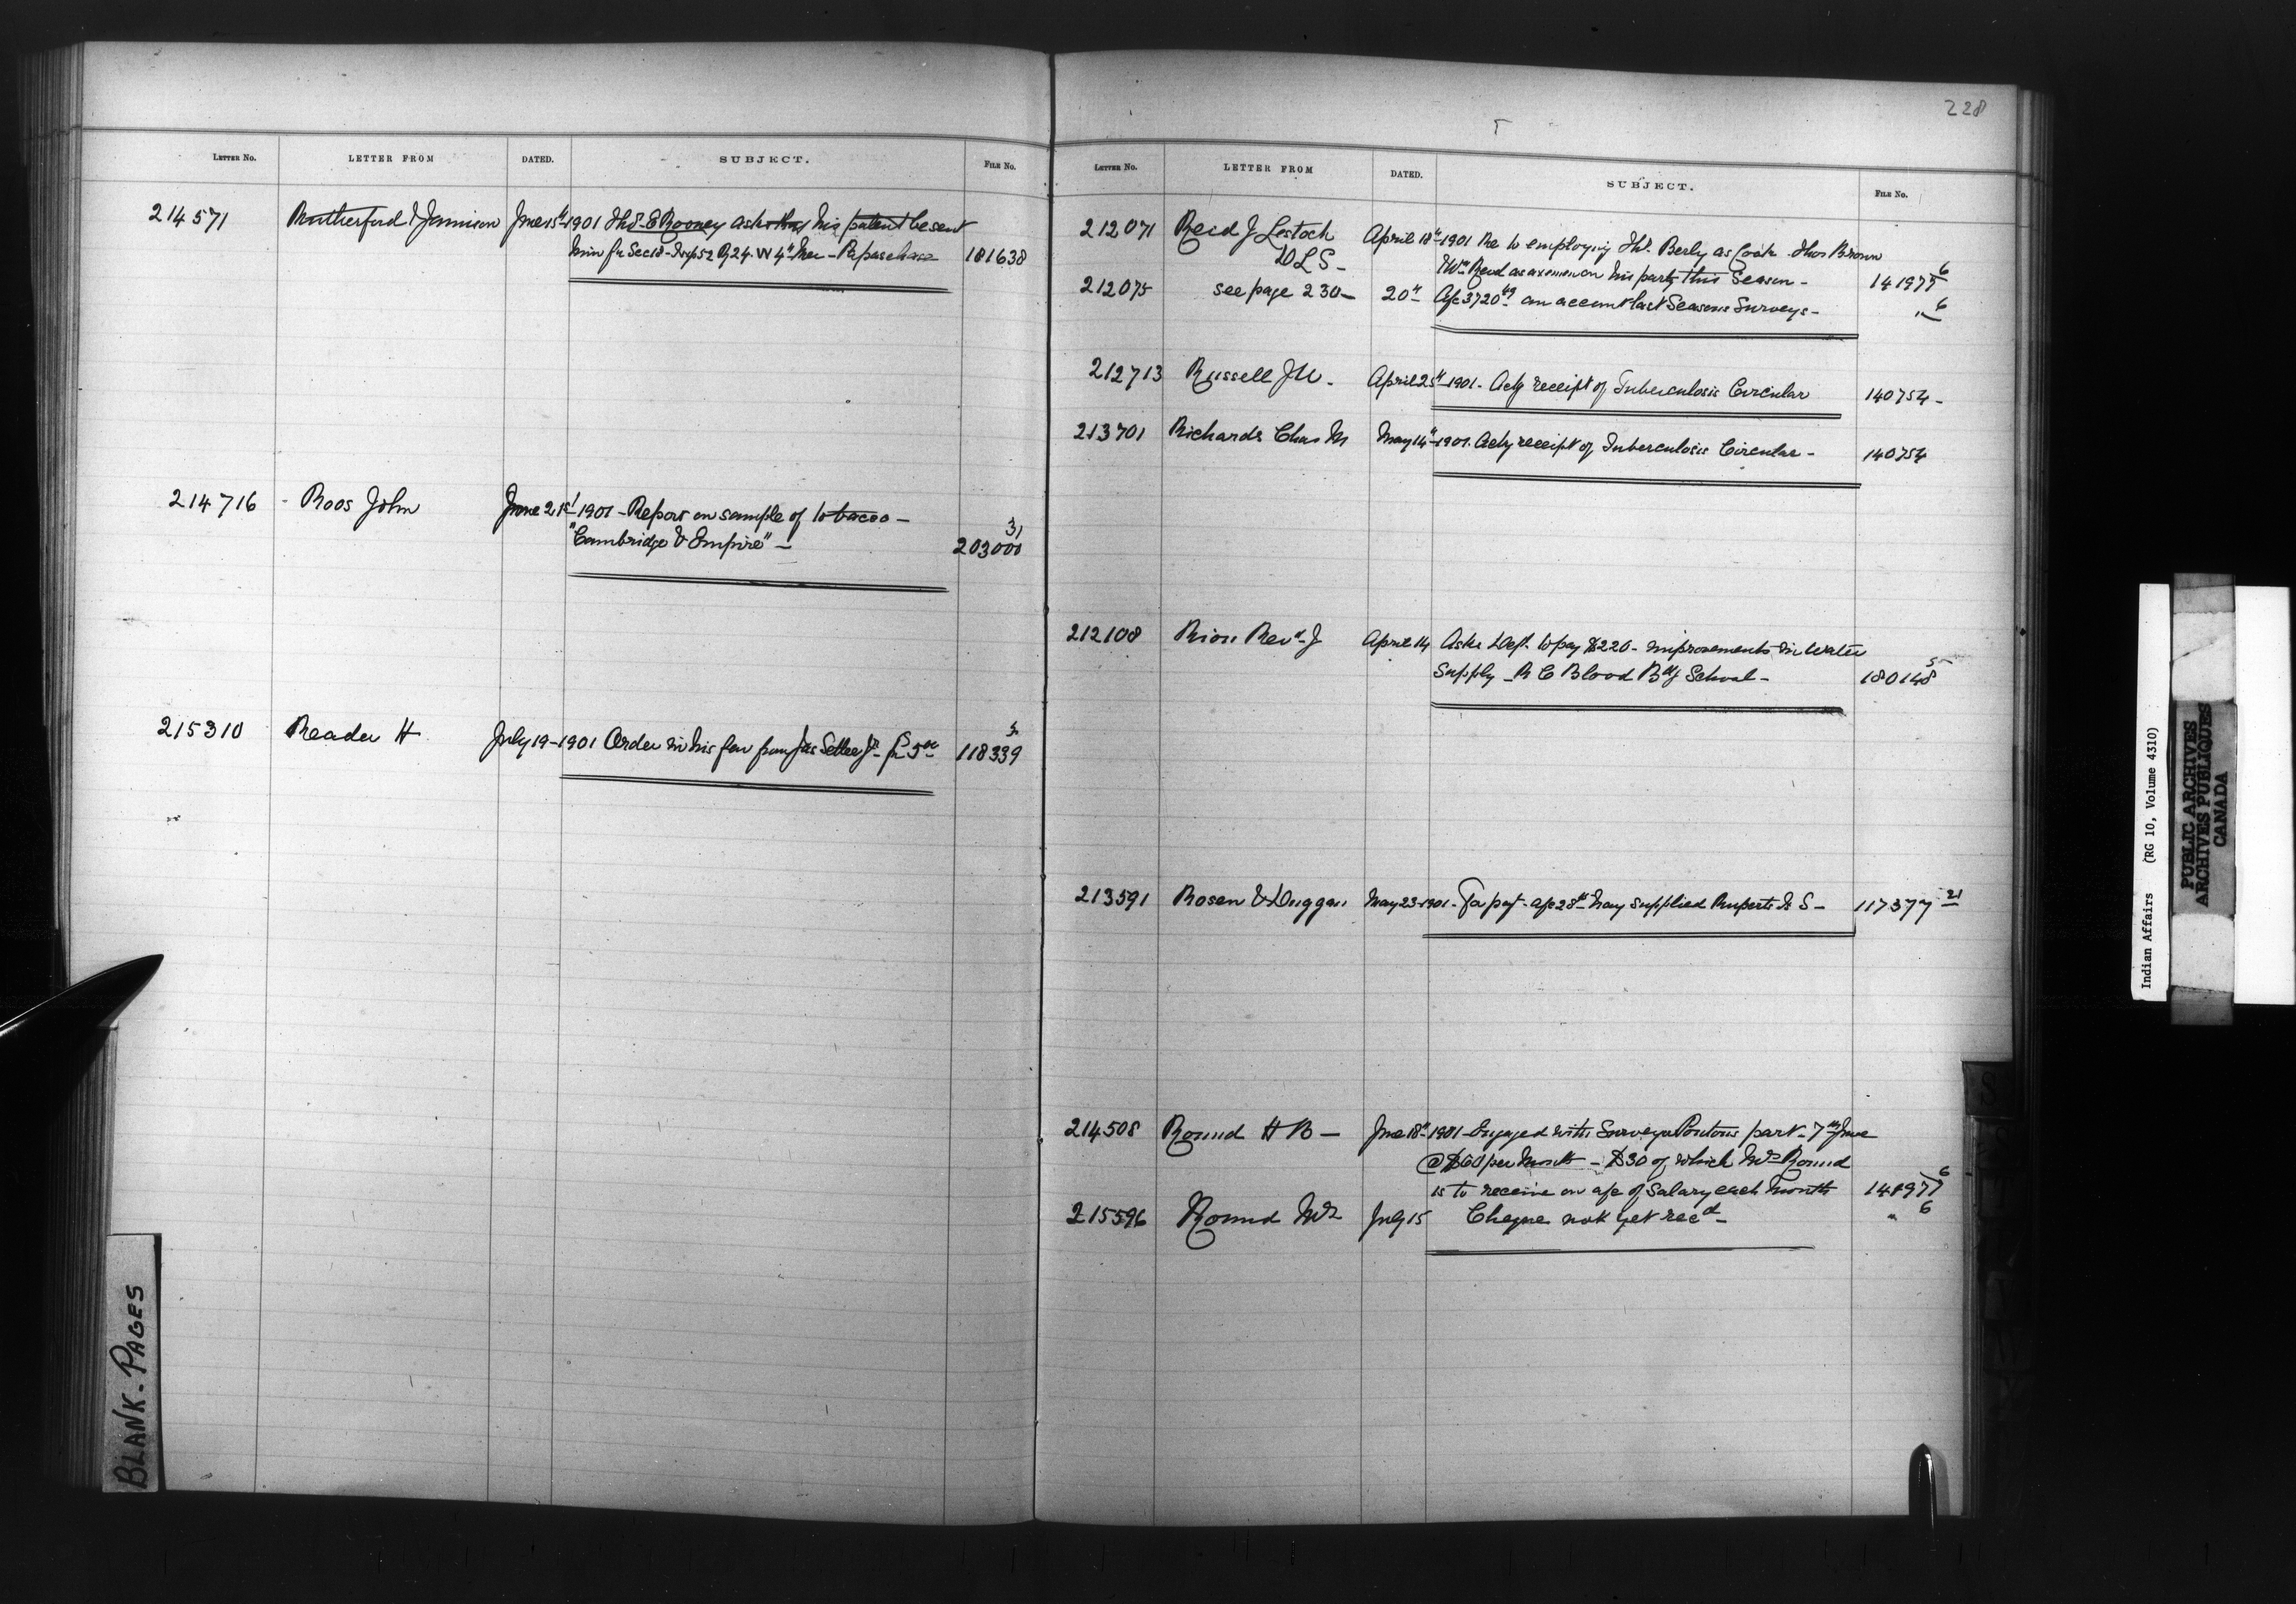 LETTER NO. LETTER FROM DATED. SUBJECT. FILE NO.
214571 Rutherford & Jamieson June 15th 1901 Thos. E Rooney asks that his patent be sent
him for Sec 18 - Twp 52 R 24. W 4th Mer - Papaschase 181638
214716 - Roos John June 21st 1901 - Report on sample of tobacco -
"Cambridge & Empire" - 203000 31
215310 Reader H July 19 - 1901 Order in his fav from Jas Settee Jr - for 5 00 118339 5
228
LETTER NO. LETTER FROM DATED. SUBJECT. FILE NO.
212071 Reid J Lestock April 18th 1901 Re to employing Thos. Berly as Cook Thos Brown
DLS - Wm Reid as axemen on his party this Season - 141977 6
212075 see page 230 - 20th A/c 3720 49 on account last Seasons Surveys - " 6
212713 Russell J W - April 25th 1901 - Ackg receipt of Tuberculosis Circular 140754 -
213701 Richards Chas M May 14th 1901. Ackg receipt of Tuberculosis Circular - 140754
212108 Riou Revd J April 14 Asks Dept. to pay $220 - improvements in Water
Supply - R C Blood Bdg School - 180148 5
213591 Rosen & Duggan May 23 - 1901 - For pay't - a/c 28th May supplied Ruperts Id S - 117377 21
214508 Round H B - June 18th 1901 - Engaged with Surveyor Pontons party - 7th June
@ $60 per Month - $30 of which Mrs Round
is to receive on a/c of Salary each Month 141977 6
215596 Round Mrs July 15 Cheque not yet recd - " 6
BLANK - PAGES
Indian Affairs (RG 10, Volume 4310)
PUBLIC ARCHIVES
ARCHIVES PUBLIQUES
CANADA
S